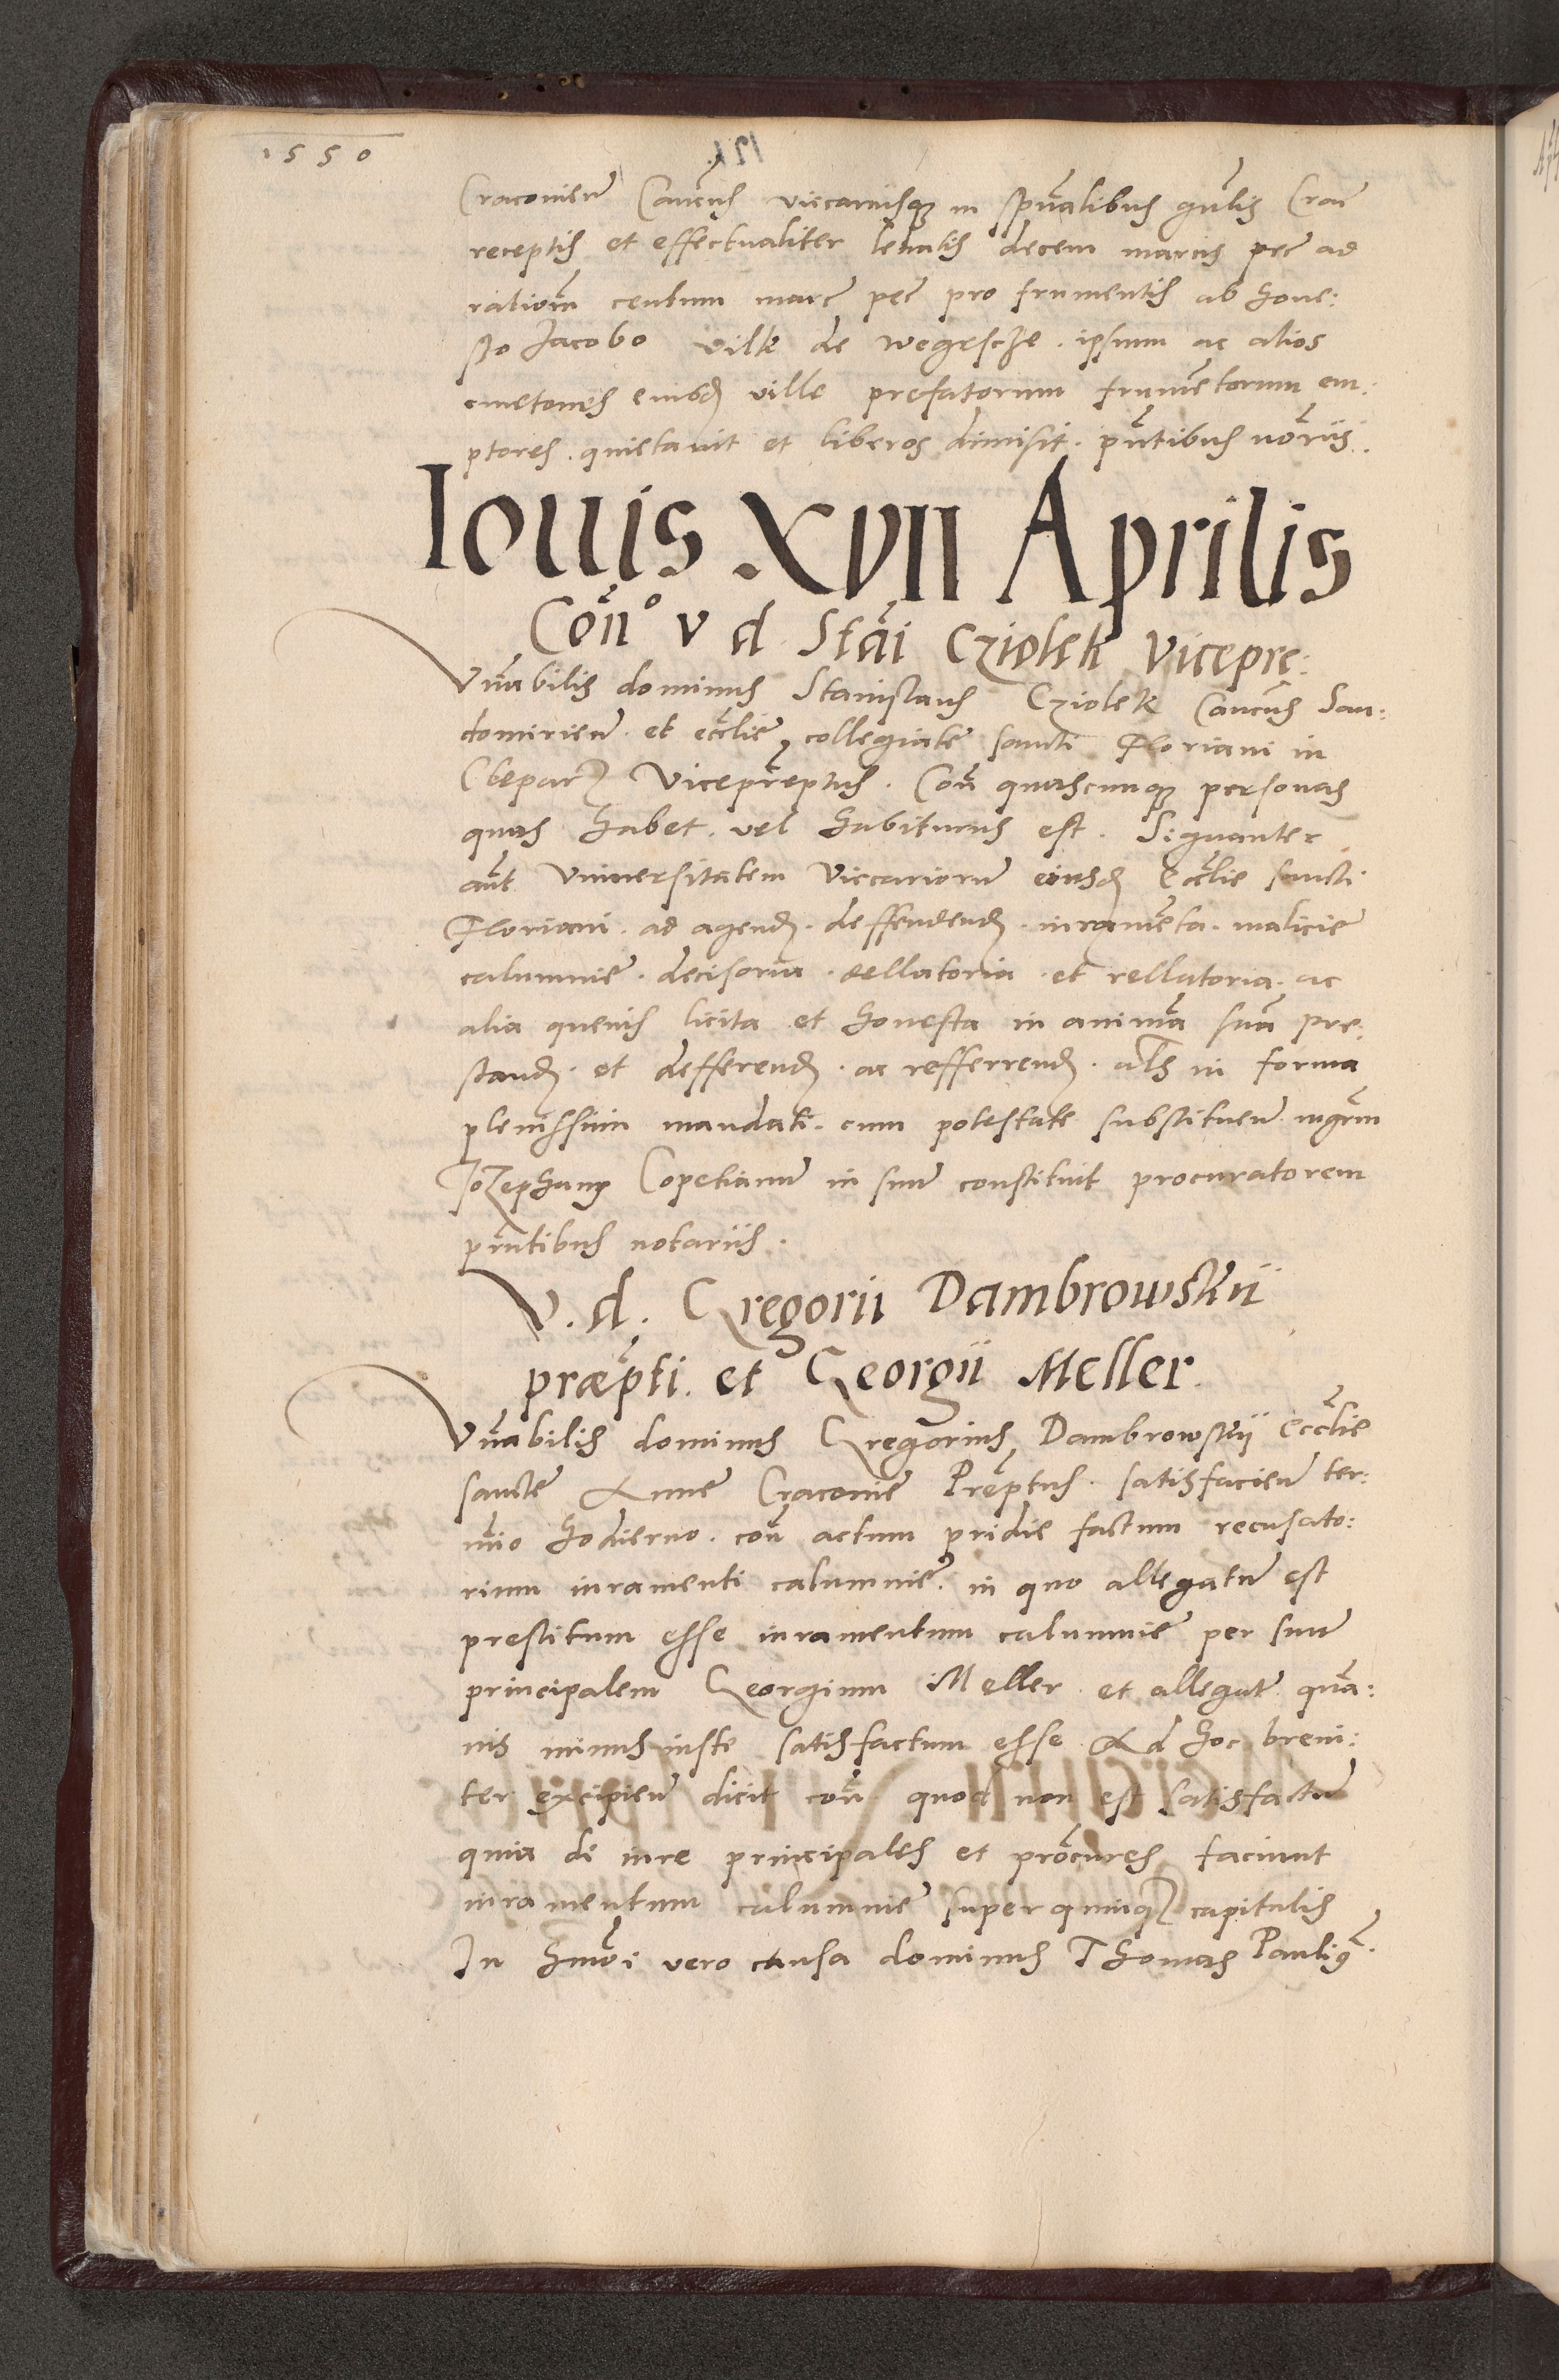 1550
Cracovien̄ Canc̄us vicariusq̨ in spūalibus gn̄lis Crac̄
receptis et effectualiter levatis decem marcis pec̄ ad
ratiom̄ centum marc̄ pec̄ pro frumentis ab hone:
sto Jacobo vilk de wegrscze . ipsum ac alios
cmetones eiusd̨ ville prefatorum frumētorum em:
ptores . quietavit et liberos dimisit . pn̄tibus nōriis .
Iouis XVII Aprilis
Con̄º v d Stāi Cziolek Vicepre:
Vn̄abilis dominus Stanislaus Cziolek Canc̄us San:
domirien̄ . et ecc̄lie collegiate sancti Floriani in
Clepar̨ Viceprep̄tus . Con̄ quascunq̨ personas
quas habet . vel habiturus est . Signanter
aūt Vniuersitatem Viccariorū eiusd̨ Ecc̄lie sancti
Floriani . ad agend̨ . deffendend̨ . iuramēta . malicie
calumnie . decisoria . dellatoria . et rellatoria . ac
alia quevis licita et honesta in animā suā pre:
stand̨ . et defferend̨ . ac refferrend̨ . als in forma
plenissim̄ mandati . cum potestate substituen̄ mgr̄m
Jozephum Copetianū in suū constituit procuratorem
pn̄tibus notariis .
V . d . Gregorii Dambrowskii
præp̄ti . et Georgii Meller .
Vn̄abilis dominus Gregorius Dambrowskii Ecc̄lie
sancte Anne Cracovie Prep̄tus . satisfacien̄ ter:
mīo hodierno . con̄ actum pridie factum recusato:
rium iuramenti calumnie . in quo allegatū est
prestitum esse iuramentum calumnie per suū
principalem Georgium Meller et allegat̄ . quā:
vis minus iuste satisfactum esse . Ad hoc brevi:
ter excipien̄ dicit con̄ quod non est satisfactū
quia de iure principales et prōcures faciunt
iuramentum calumnie super quinq̨ capitulis
In hmōi vero causa dominus Thomas Pauliꝯ̄ .